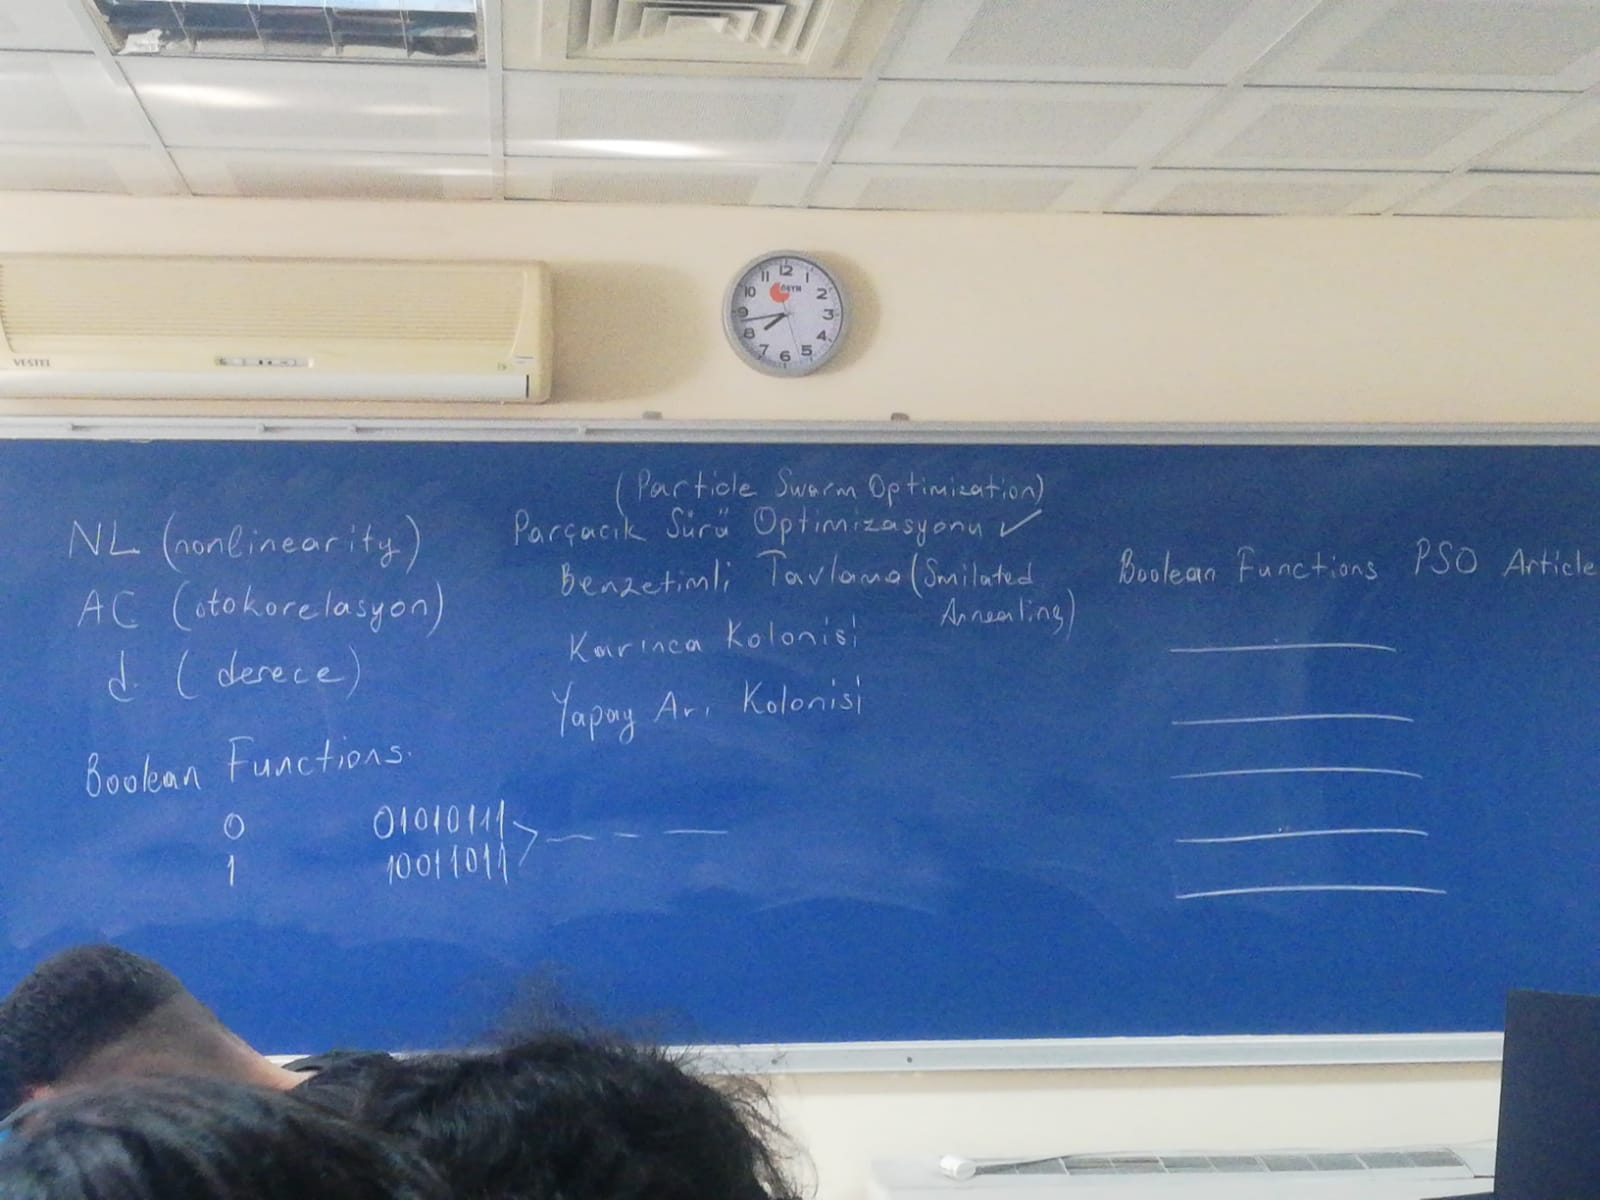 12
11
1
10
ÖSYM
2
9
3
8
4
7
6
5
VESTEL
NL (nonlinearity)
AC (otokorelasyon)
d. (derece)
Boolean Functions.
0 01010111
1 10011011
(Particle Swarm Optimization)
Parçacık Sürü Optimizasyonu ✓
Benzetimli Tavlama (Smilated
Annealing)
Karınca Kolonisi
Yapay Arı Kolonisi
Boolean Functions PSO Article